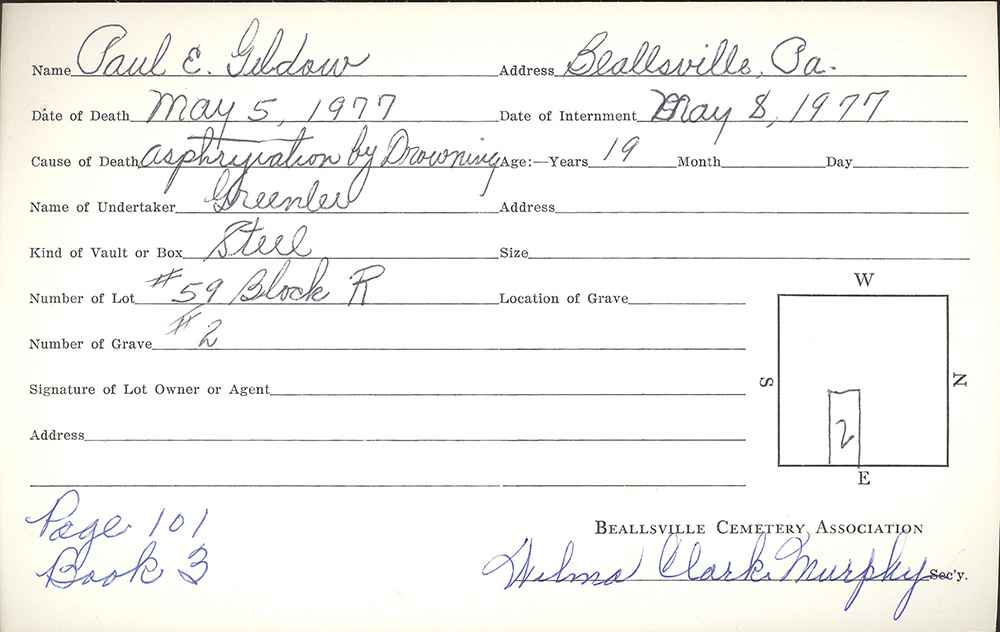 Name Paul E. Gildow Address Beallsville, Pa.
Date of Death May 5, 1977 Date of Internment May 8, 1977
Cause of Death asphryxiation by Drowning Age:—Years 19 Month Day
Name of Undertaker Greenlee Address
Kind of Vault or Box Steel Size
Number of Lot #59 Block R Location of Grave
W
Number of Grave #2
S N
Signature of Lot Owner or Agent
2
Address
E
Page 101
Book 3
BEALLSVILLE CEMETERY ASSOCIATION
Wilma Clark Murphy Sec'y.